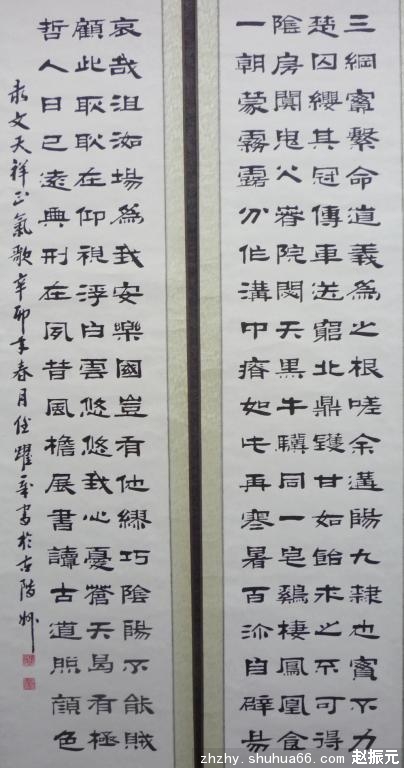 三綱實繫命道義為之根嗟余遘陽九隸也實不力
楚囚纓其冠傳車送窮北鼎鑊甘如飴求之不可得
陰房闃鬼火春院閟天黑牛驥同一皂鷄棲鳳凰食
一朝蒙霧露分作溝中瘠如此再寒暑百沴自辟易
哀哉沮洳場為我安樂國豈有他繆巧陰陽不能賊
顧此耿耿在仰視浮白雲悠悠我心憂蒼天曷有極
哲人日已遠典刑在夙昔風檐展書讀古道照顏色
录文天祥正氣歌辛卯年春月任躍書於古階州
zhzhy.shuhua66.com 赵振元